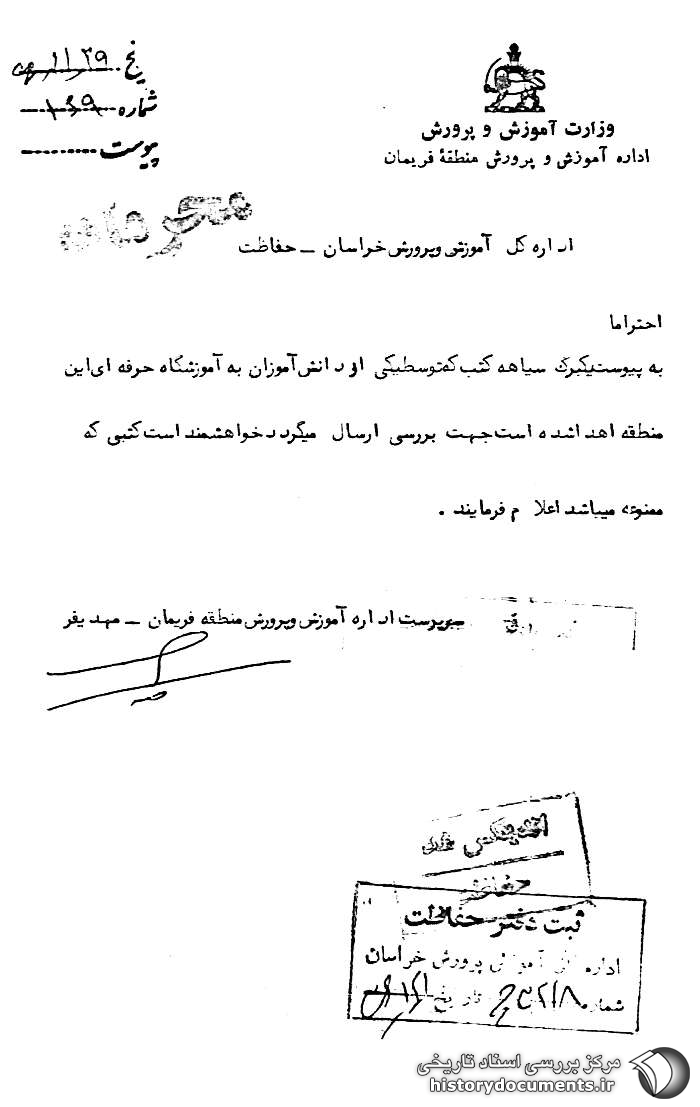 وزارت آموزش و پرورش
اداره آموزش و پرورش منطقهٔ فریمان
شماره
پیوست
محرمانه
اداره کل آموزش وپرورش خراسان – حفاظت
احتراما
به پیوستیکبرگ سیاهه کتب کهتوسطیکی از دانش‌آموزان به آموزشگاه حرفه ای‌این
منطقه اهدا شده است‌جهت بررسی ارسال میگردد خواهشمند است‌کتبی که
ممنوعه میباشد اعلام فرمایند .
سرپرست اداره آموزش وپرورش منطقه فریمان – مهدیفر
اندیکس شد
حفاظت
ثبت دفتر حفاظت
اداره کل آموزش پرورش خراسان
شماره تاریخ
مرکز بررسی اسناد تاریخی
historydocuments.ir